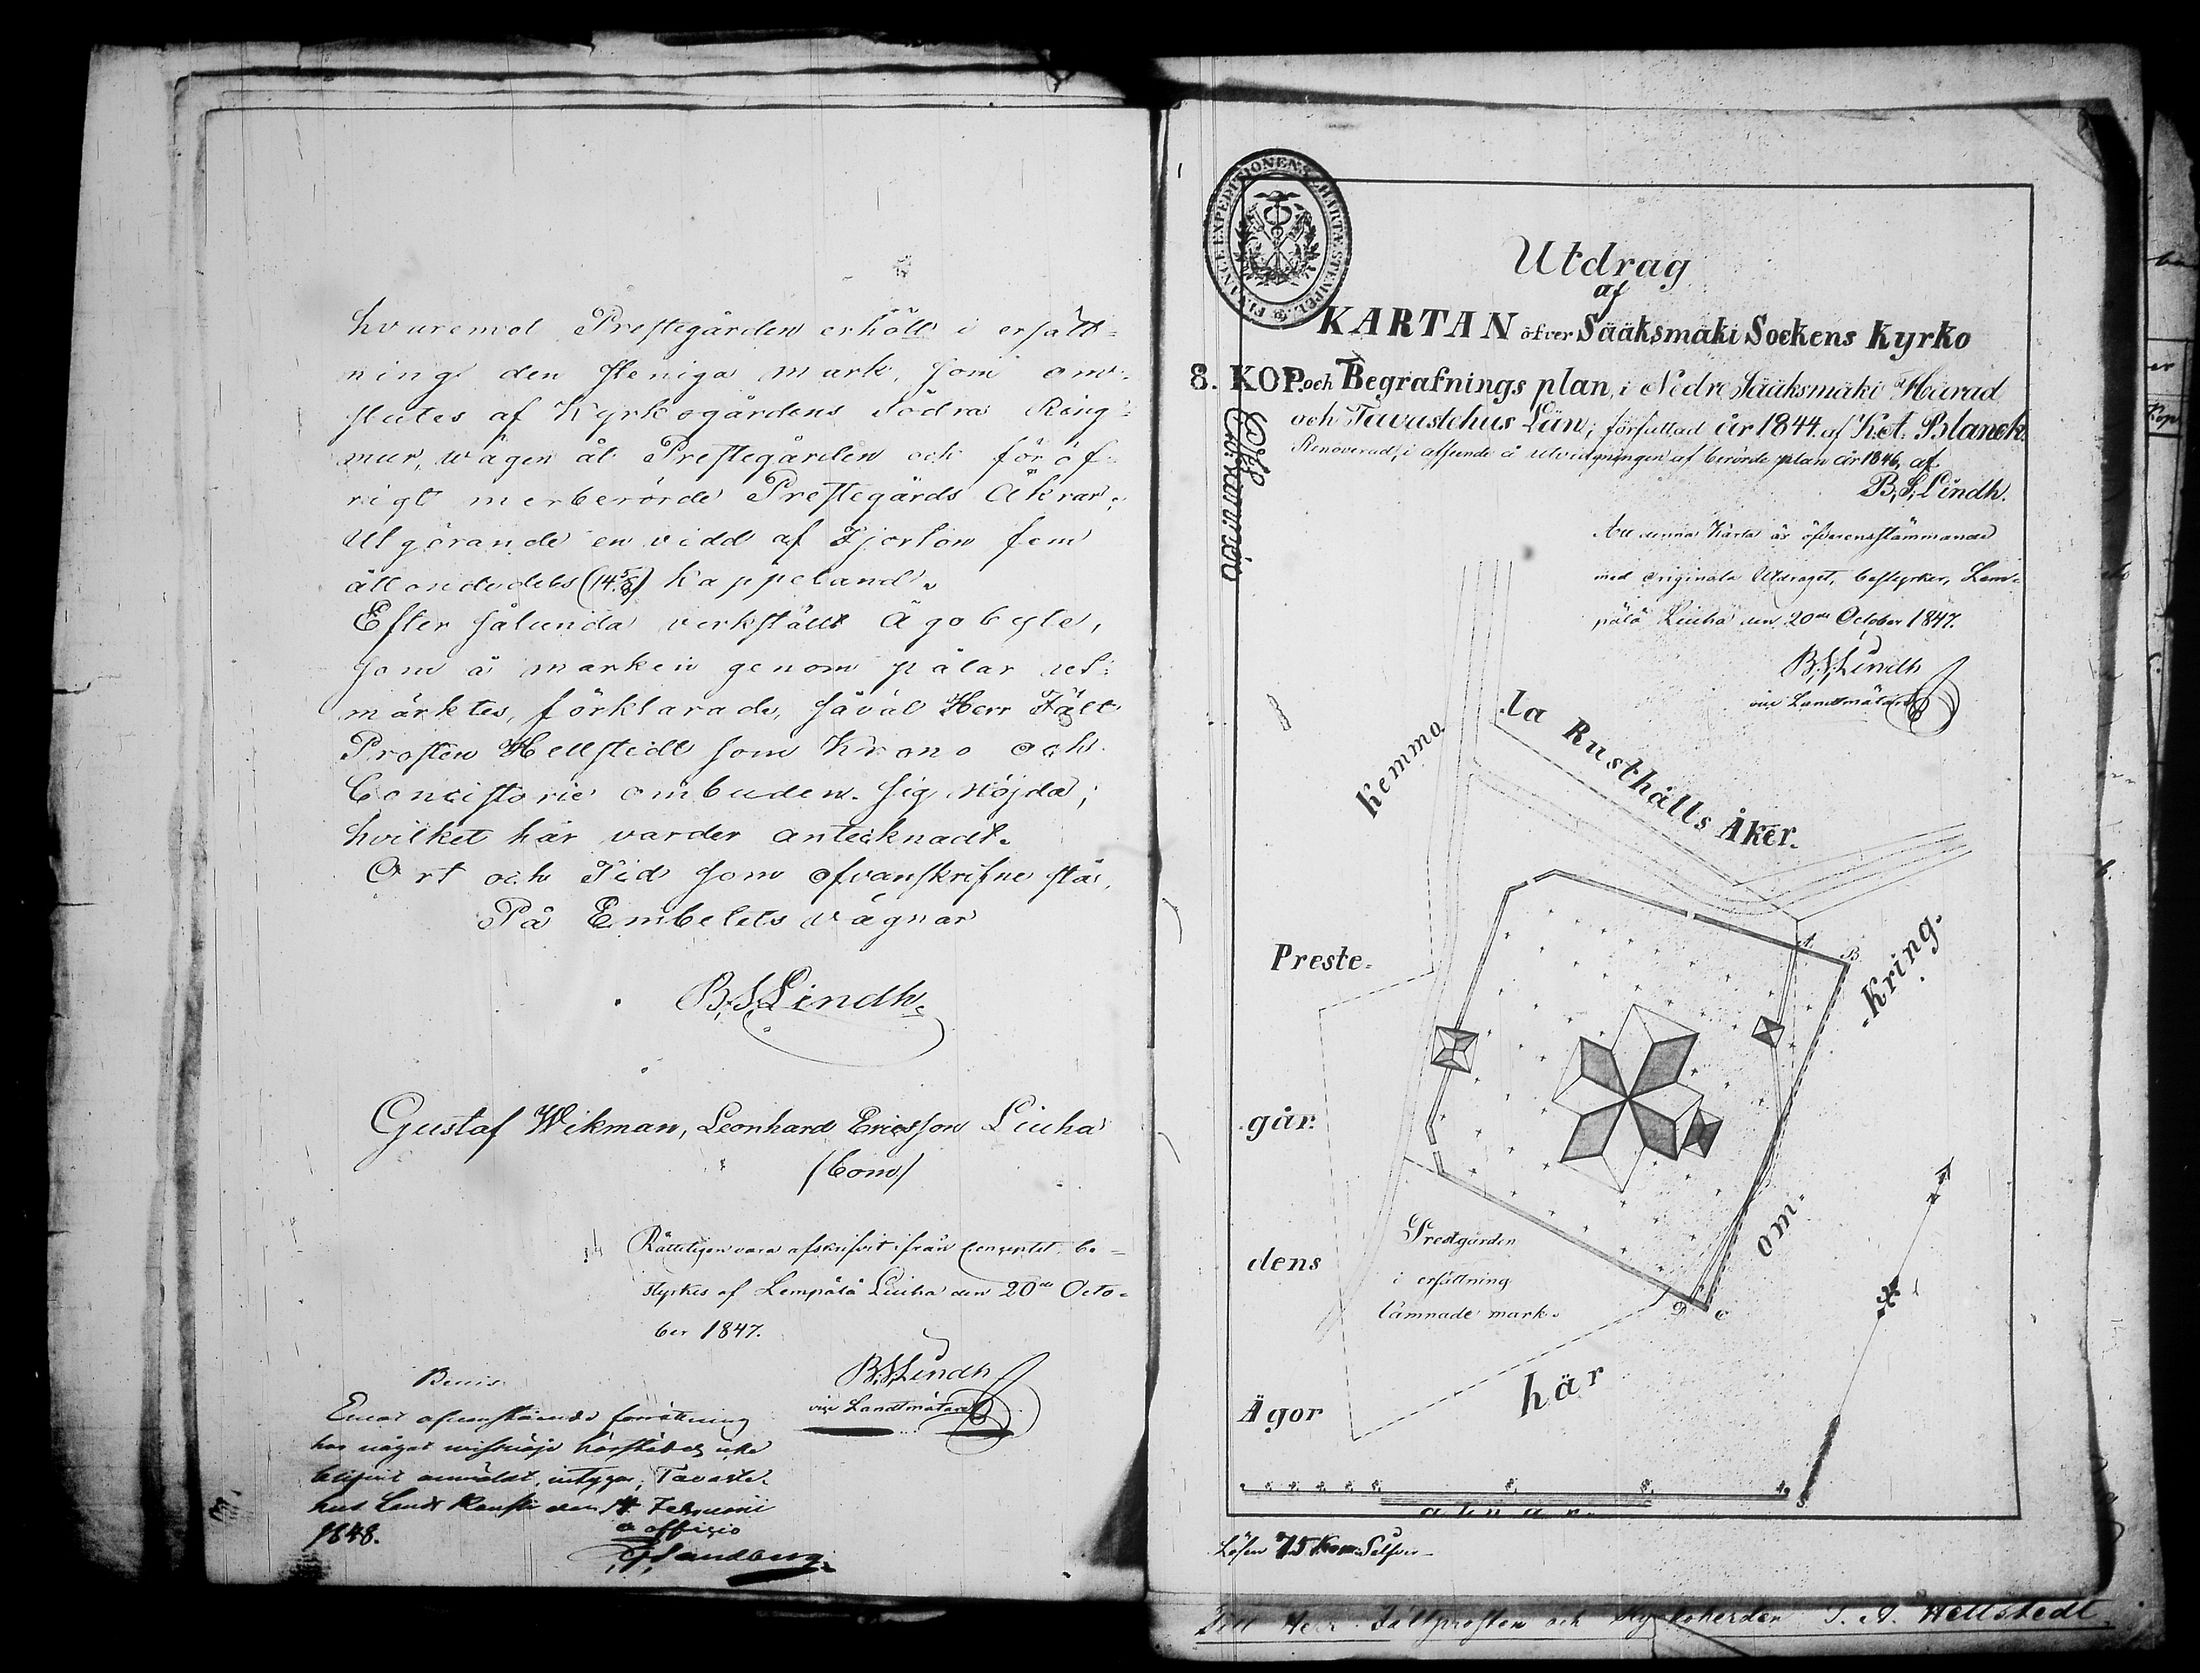 hvaremot Prestegården erhöll i ersätt-
ning den steniga mark, som om-
slutes af Kyrkogårdens södra Ring-
mur, wägen åt Prestegården och för öf-
rigt merberörde Prestegårds Åkrar,
utgörande en vidd af Fjorton fem
åttondedels (14 5/8) Kappeland.
Efter sålunda verkstält Ägobyte,
som å marken genom pålar ut-
märktes, förklarade, såväl Herr Fält
Prosten Hellstedt som Krono och
Concistorie ombuden sig nöjda;
hvilket här varder antecknadt.
Ort och Tid som ofvanskrifne stå.
På Embetets vägnar
B. S. Lindh.
Gustaf Wikman, Leonhard Ericsson Liuha
(Com)
Rätteligen vara afskrifvit från Conceptet, be-
styrkes af Lempälä Liuha den 20de Octo-
ber 1847.
B. S. Lindh
vice Landtmätare
Bevis
Emot ofvanstående förrättning
har något missnöje härstädes icke
blifvit anmäldt, intygar; Tavaste-
hus Lands Kansli den Februarii
1848.
ex officio
Sandberg
FINANCE EXPEDITIONENS CHARTÆ STEMPEL
8. KOP.
Silfver
Utdrag
af
KARTAN öfver Sääksmäki Sockens Kyrko
och Begrafnings plan, i Nedre Sääksmäki Härad
och Tavastehus Län; författad År 1844 af K. A. Blanck.
Renoverad, i afseende å utvidgningen af berörde plan år 1846, af
B. S. Lindh.
Att denna Karta är öfverensstämmande
med originala Utdraget, bestyrker, Lem-
pälä Liuha den 20de October 1847.
B. S. Lindh
vice Landtmätare
Kemmo.
.la Rusthålls Åker.
Preste.
A
B
.Kring.
.går.
om
Prestgården
i ersättning
lämnade mark.
dens
D
C
här
Ägor
Lösen 75 Kop. Silfver
Till Herr Fältprosten och Kyrkoherden J. A. Hellstedt.